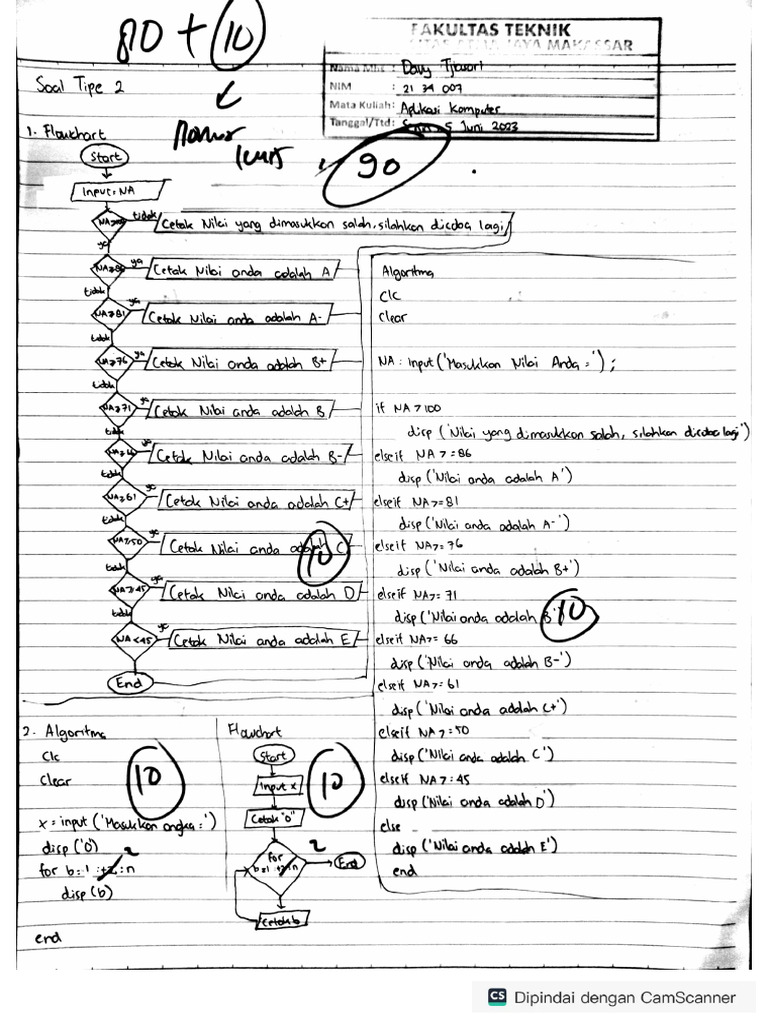 80 + 10
90
FAKULTAS TEKNIK
MAKASSAR
Nama Mhs : Davy
NIM : 21 31 007
Mata Kuliah : Aplikasi Komputer
Tanggal/Ttd : 5 Juni 2023
Soal Tipe 2
1. Flowchart
Start
Input = NA
tidak
Cetak Nilai yang dimasukkan salah, silahkan dicoba lagi
ya
ya
Cetak Nilai anda adalah A
tidak
NA≥81
ya
Cetak Nilai anda adalah A-
tidak
NA≥76
ya
Cetak Nilai anda adalah B+
tidak
NA≥71
ya
Cetak Nilai anda adalah B
tidak
ya
Cetak Nilai anda adalah B-
tidak
NA≥61
ya
Cetak Nilai anda adalah C+
tidak
NA≥50
ya
Cetak Nilai anda adalah C
10
tidak
NA≥45
ya
Cetak Nilai anda adalah D
tidak
NA<45
ya
Cetak Nilai anda adalah E
End
Algoritma
Clc
Clear
NA : Input ('Masukkan Nilai Anda = ') ;
if NA > 100
disp ('Nilai yang dimasukkan salah, silahkan dicoba lagi')
elseif NA >= 86
disp ('Nilai anda adalah A')
elseif NA >= 81
disp ('Nilai anda adalah A-')
elseif NA >= 76
disp ('Nilai anda adalah B+')
elseif NA >= 71
disp ('Nilai anda adalah B'
10
elseif NA >= 66
disp ('Nilai anda adalah B-')
elseif NA >= 61
disp ('Nilai anda adalah C+')
elseif NA >= 50
disp ('Nilai anda adalah C')
elseif NA >= 45
disp ('Nilai anda adalah D')
else
disp ('Nilai anda adalah E')
end
2. Algoritma
Clc
Clear
10
x = input ('Masukkan angka = ')
disp ('0')
2
for b = 1 : +2 : n
disp (b)
end
Flowchart
Start
Input x
10
Cetak "0"
for
b=1 +2 : n
2
End
Cetak b
CS Dipindai dengan CamScanner